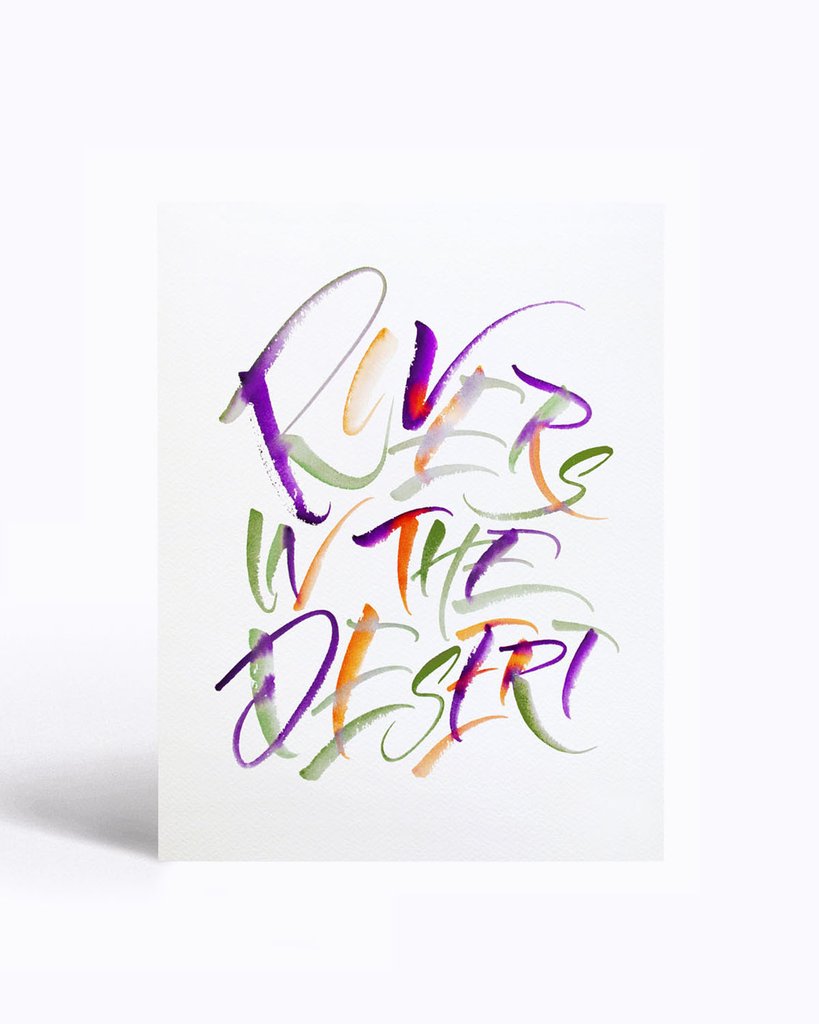 RIVERS
IN THE
DESERT